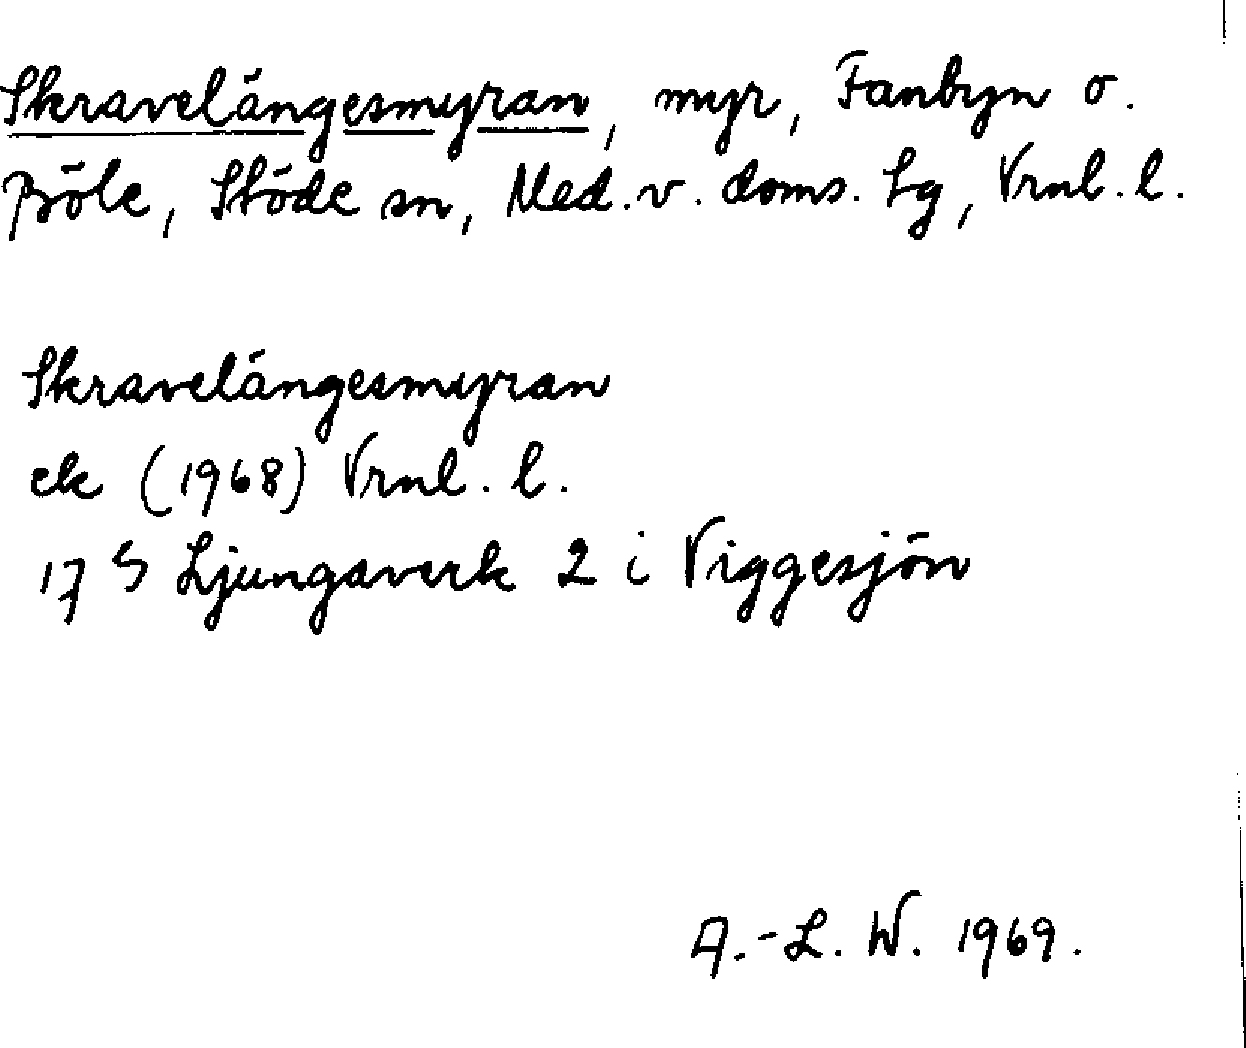 Skravelängesmyran, myr, Fanbyn o.
Böle, Stöde sn, Med. v. doms. tg, Vrnl. l.
Skravelängesmyran
ek (1968) Vrnl. l.
17 S Ljungaverk 2 i Viggesjön
A.-L. W. 1969.